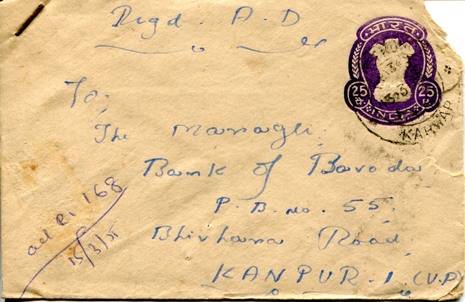 Regd. A.D
भारत
25 25
INDIA
KARWAR
To;
The Manager
Bank of Baroda
P.B. no. 55.
Bhirhana Road.
KANPUR.1.(U.P)
168
15/3/